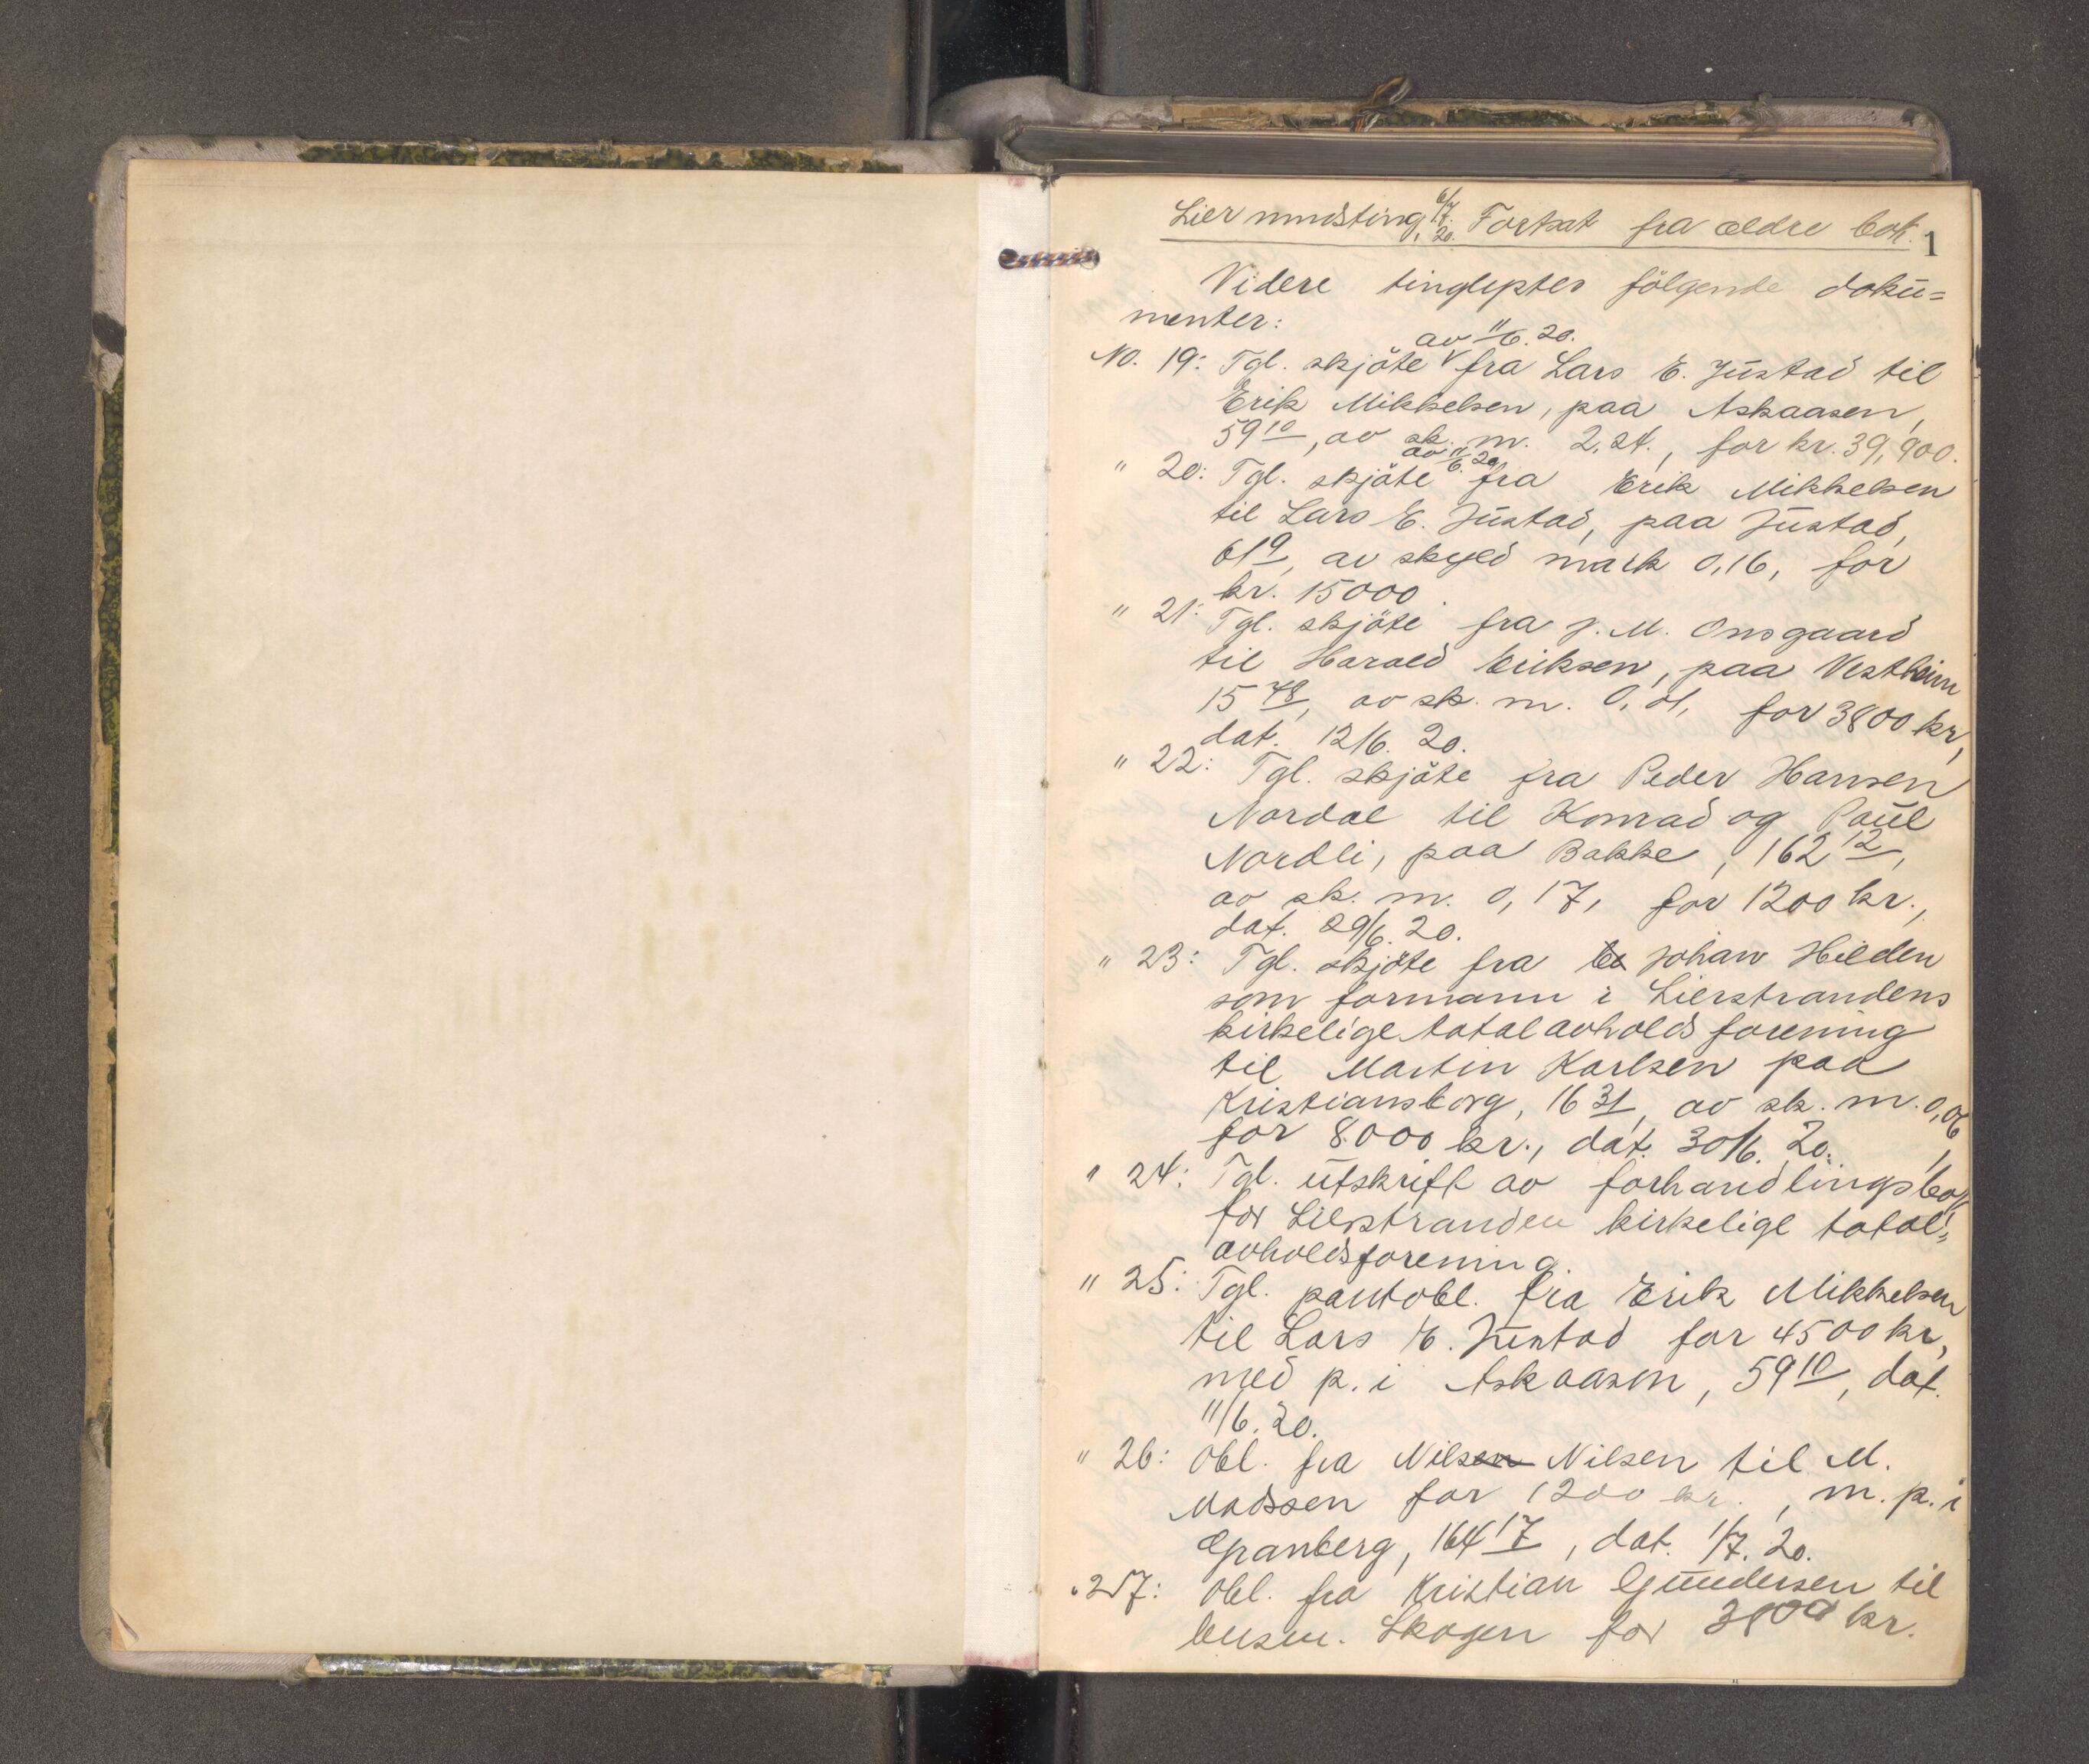 Lier mndsting 6/7. 20. Fortsat fra ældre bok.
1
Videre tinglystes følgende doku=
menter:
av 11/6. 20.
No. 19: Tgl. skjöte fra Lars E. Justad til
Erik Mikkelsen, paa Askaasen,
59 10, av sk. m. 2,24., for kr. 39,900.
av 11/6. 20.
" 20: Tgl. skjöte fra Erik Mikkelsen
til Lars E. Justad, paa Justad,
61 9, av skyld mark 0,16, for
kr. 15000.
" 21: Tgl. skjöte fra J. M. Onsgaard
til Harald Eriksen, paa Vestheim
15 48, av sk. m. 0,01, for 3800 kr,
dat. 12/6. 20.
" 22: Tgl. skjöte fra Peder Hansen
Nordal til Konrad og Paul
Nordli, paa Bakke, 162 12,
av sk. m. 0,17, for 1200 kr.,
dat. 29/6. 20.
" 23: Tgl. skjöte fra Johan Hilden
som formann i Lierstrandens
kirkelige totalavholdsforening
til Martin Karlsen paa
Kristiansborg, 16 31, av sk. m. 0,06,
for 8000 kr., dat. 30/6. 20.
" 24: Tgl. utskrift av forhandlingsbok
for Lierstranden kirkelige total=
avholdsforening.
" 25: Tgl. pantobl. fra Erik Mikkelsen
til Lars E. Justad for 4500 kr,
med p. i Askaasen, 59 10, dat.
11/6. 20.
" 26: Obl. fra Nilsen Nilsen til M.
Madssen for 1200 kr., m. p. i
Granberg, 164 17, dat. 1/7. 20.
" 27: Obl. fra Kristian Gundersen til
Skogen for 3800 kr.